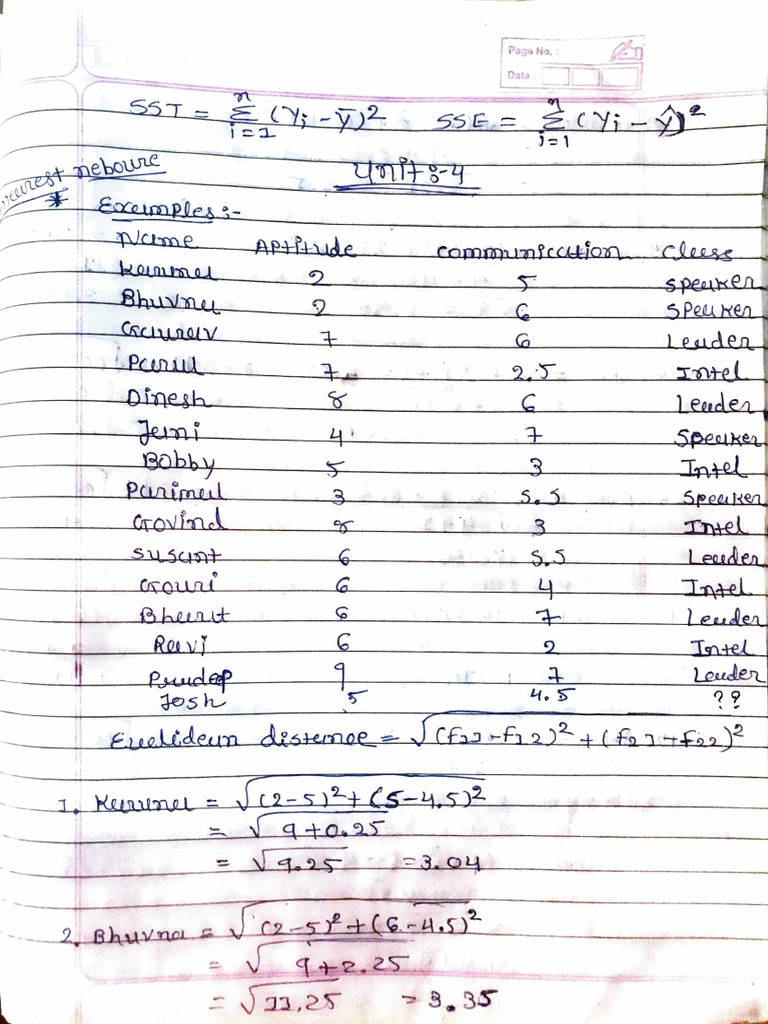 Page No. :
Date :
SST = Σ_{i=1}^{n} (Yi - ȳ)²   SSE = Σ_{i=1}^{n} (Yi - ŷ)²
nearest neboure
Unit :- 4
* Examples :-
Name Aptitude communication class
Karuna 2 5 speaker
Bhuvna 2 6 speaker
Gaurav 7 6 Leader
Parul 7 2.5 Intel
Dinesh 8 6 Leader
Jemi 4 7 Speaker
Bobby 5 3 Intel
Parimal 3 5.5 speaker
Govind 8 3 Intel
susant 6 5.5 Leader
Gouri 6 4 Intel
Bharat 6 7 Leader
Ravi 6 2 Intel
Pradeep 9 7 Leader
Josh 5 4.5 ??
Euclidean distance = √(f11 - f12)² + (f21 - f22)²
1. Karuna = √(2-5)² + (5-4.5)²
= √9 + 0.25
= √9.25 = 3.04
2. Bhuvna = √(2-5)² + (6-4.5)²
= √9 + 2.25
= √11.25 = 3.35